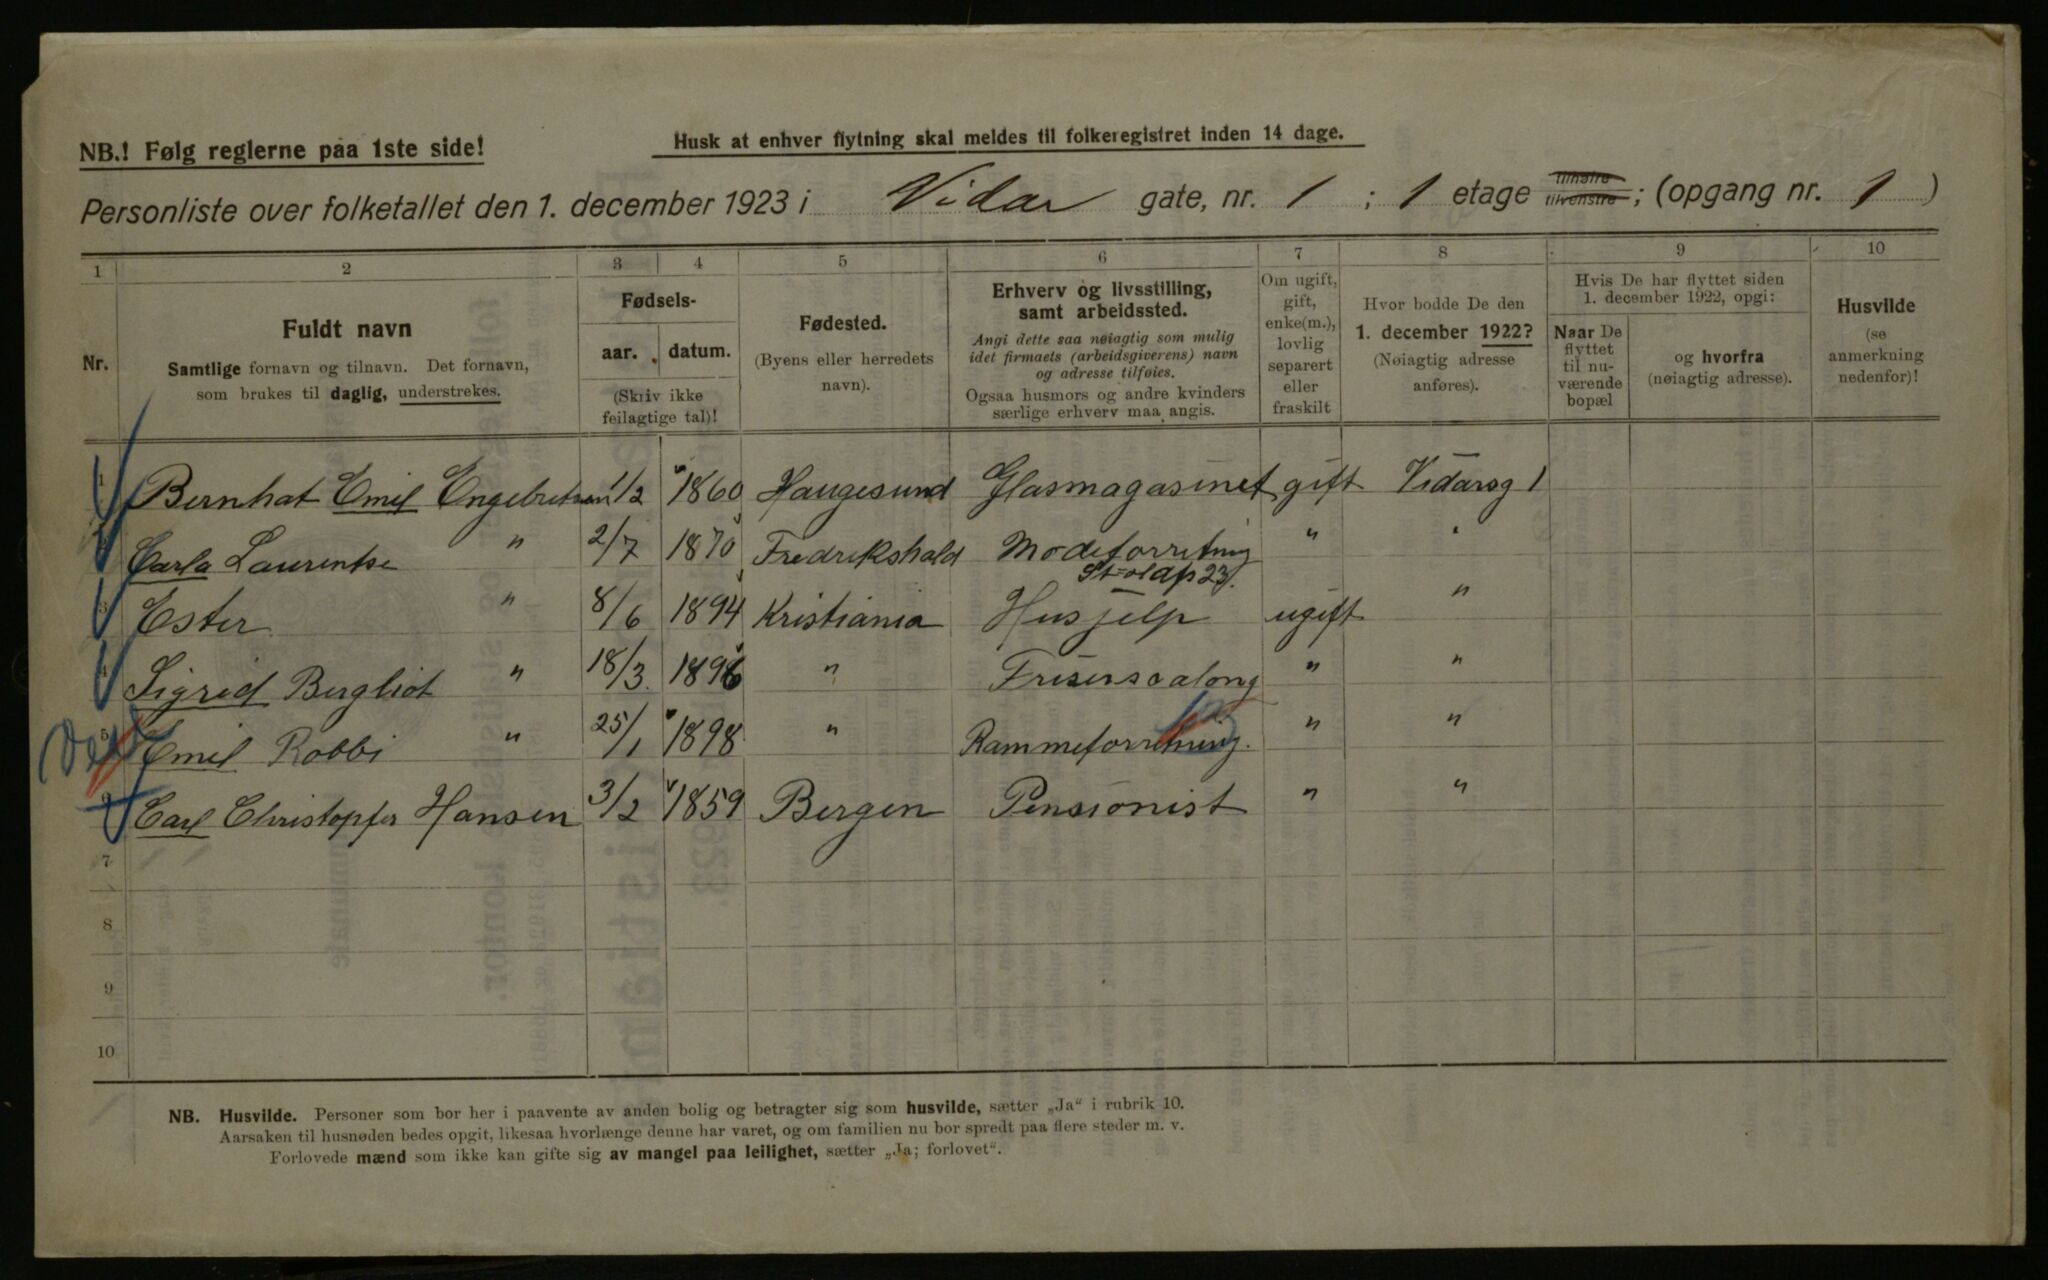 NB.! Følg reglerne paa 1ste side!
Husk at enhver flytning skal meldes til folkeregistret inden 14 dage.
Personliste over folketallet den 1. december 1923 i Vidar gate, nr. 1 ; 1 etage tilhøire tilvenstre ; (opgang nr. 1 )
1 2 3 4 5 6 7 8 9 10
Nr.
Fuldt navn
Samtlige fornavn og tilnavn. Det fornavn,
som brukes til daglig, understrekes.
Fødsels-
aar. datum.
(Skriv ikke
feilagtige tal)!
Fødested.
(Byens eller herredets
navn).
Erhverv og livsstilling,
samt arbeidssted.
Angi dette saa nøiagtig som mulig
idet firmaets (arbeidsgiverens) navn
og adresse tilføies.
Ogsaa husmors og andre kvinders
særlige erhverv maa angis.
Om ugift,
gift,
enke(m.),
lovlig
separert
eller
fraskilt
Hvor bodde De den
1. december 1922?
(Nøiagtig adresse
anføres).
Hvis De har flyttet siden
1. december 1922, opgi:
Naar De
flyttet
til nu-
værende
bopæl
og hvorfra
(nøiagtig adresse).
Husvilde
(se
anmerkning
nedenfor)!
1 Bernhat Emil Engebretsen 1/2 1860 Haugesund Glasmagasinet gift Vidarsg 1
2 Carla Laurentse " 2/7 1870 Fredrikshald Modeforretning " "
St olafs 23.
3 Ester " 8/6 1894 Kristiania Husjelp ugift "
4 Sigrid Bergliot " 18/3. 1896 " Friserscalong " "
5 Emil Robbi " 25/1 1898 " Rammeforretning. " "
6 Carl Christopfer Hansen 3/2 1859 Bergen Pensionist " "
7
8
9
10
NB. Husvilde. Personer som bor her i paavente av anden bolig og betragter sig som husvilde, sætter „Ja“ i rubrik 10.
Aarsaken til husnøden bedes opgit, likesaa hvorlænge denne har varet, og om familien nu bor spredt paa flere steder m. v.
Forlovede mænd som ikke kan gifte sig av mangel paa leilighet, sætter „Ja; forlovet“.